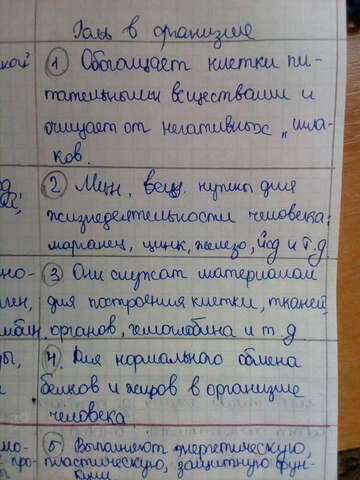 Роль в организме
① Обогащает клетки пи-
тательными веществами и
очищает от негативных „шла-
ков.
② Мин. вещ. нужны для
жизнедеятельности человека:
марганец, цинк, железо, йод и т.д.
③ Они служат материалом
для построения клетки, тканей,
органов, гемоглобина и т.д.
④ Для нормального обмена
белков и жиров в организме
человека
⑤ Выполняют энергетическую,
пластическую, защитную фун-
кции